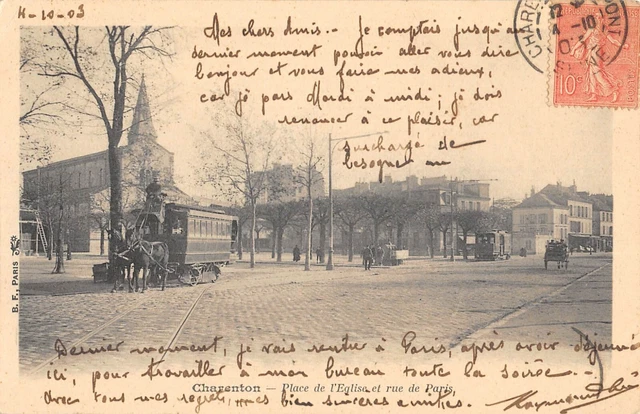 4-10-03
Mes chers Amis.. Je comptais jusqu'au
dernier moment pouvoir aller vous dire
bonjour et vous faire mes adieux,
car je pars Mardi à midi; je dois
renoncer à ce plaisir, car
surcharge de
besogne au
CHARENTON
10
10c
B. F., PARIS
Dernier moment, je vais rentrer à Paris, après avoir déjeuné
ici, pour travailler à mon bureau toute la soirée -
Charenton — Place de l'Eglise et rue de Paris.
donc tous mes regrets, mes bien sincères amitiés.